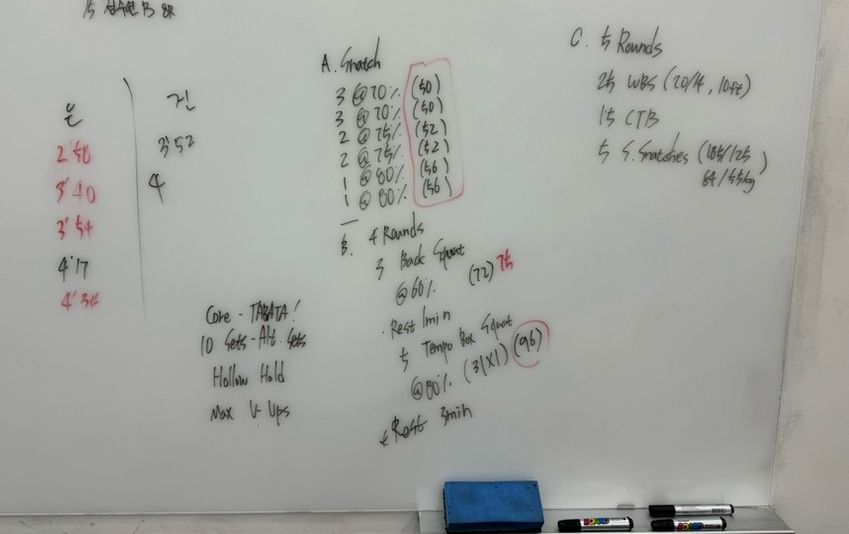 은
2'58
3'40
3'54
4'17
4'36
진
3'52
4
Core - TABATA!
10 Sets - Alt. Sets
Hollow Hold
Max V-Ups
A. Snatch
3 @ 70% (50)
3 @ 70% (50)
2 @ 75% (52)
2 @ 75% (52)
1 @ 80% (56)
1 @ 80% (56)
B. 4 Rounds
3 Back Squat
@ 60% (72) 75
. Rest 1min
5 Tempo Box Squat
@ 80% (31X1) (96)
Rest 3min
C. 5 Rounds
25 WBS (20/14, 10ft)
15 CTB
5 S.Snatches (185/125
84/55kg)
BOARD